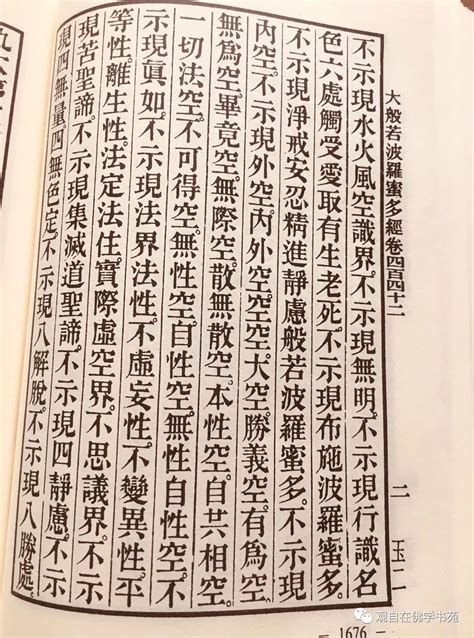 大般若波羅蜜多經卷四百四十二 二 玉二
不示現水火風空識界。不示現無明。不示現行識名
色六處觸受愛取有生老死。不示現布施波羅蜜多。
不示現淨戒安忍精進靜慮般若波羅蜜多。不示現
內空。不示現外空。內外空。空空。大空。勝義空。有為空。
無為空。畢竟空。無際空。散無散空。本性空。自共相空。
一切法空。不可得空。無性空。自性空。無性自性空。不
示現眞如。不示現法界。法性。不虛妄性。不變異性。平
等性。離生性。法定。法住。實際。虛空界。不思議界。不示
現苦聖諦。不示現集滅道聖諦。不示現四靜慮。不示
現四無量四無色定。不示現八解脫。不示現八勝處。
— 1676 —
观自在佛学书苑